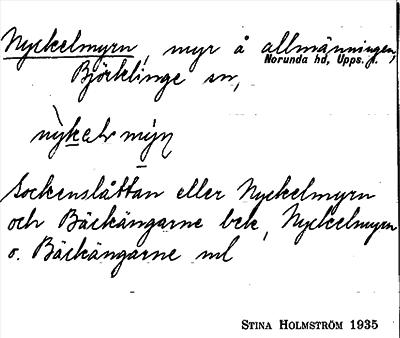 Nyckelmyrn, myr å allmänningen,
Norunda hd, Upps. l.
Björklinge sn,
sockenslåttan eller Nyckelmyrn
och Bäckängarne bek, Nyckelmyrn
o. Bäckängarne ml
STINA HOLMSTRÖM 1935